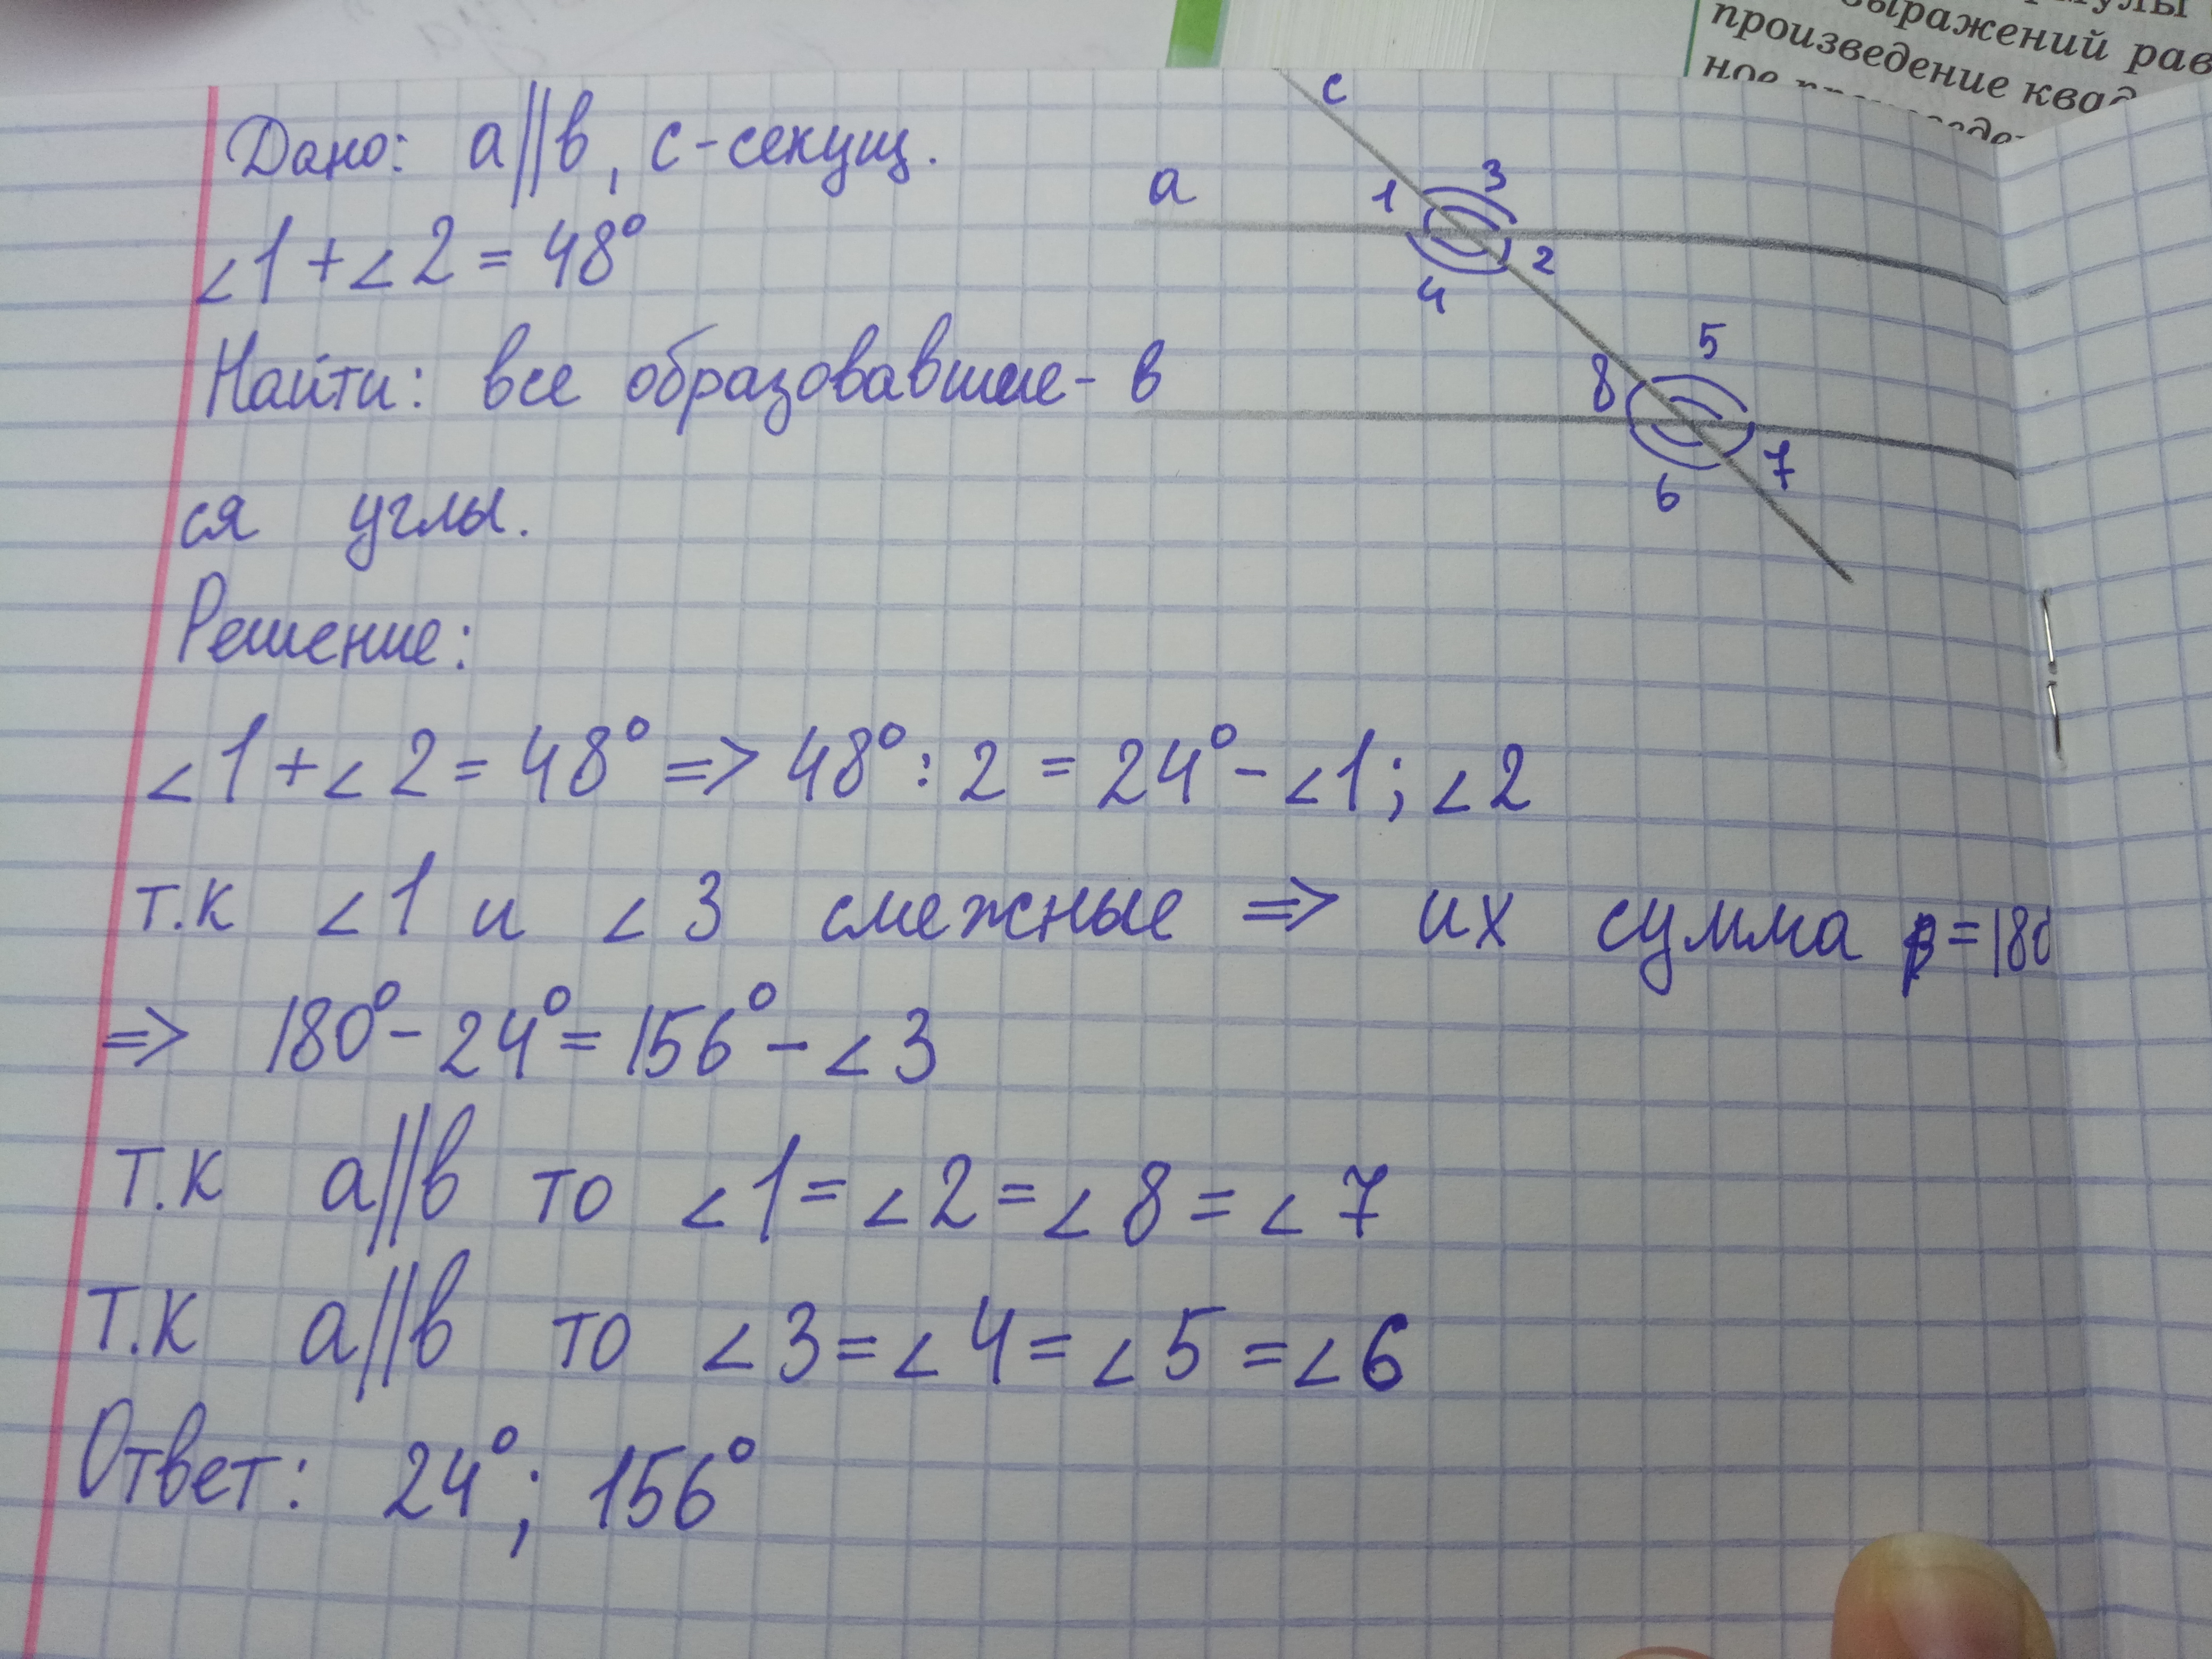 выражений рав
произведение квад
ное
Дано: a||в, с-секущ.
∠1+∠2=48°
Найти: все образовавшие-
ся углы.
c
a
1 3
4 2
в
8 5
6 7
Решение:
∠1+∠2=48° => 48°:2=24°-∠1;∠2
т.к ∠1 и ∠3 смежные => их сумма =180
=> 180°-24°=156°-∠3
т.к a||в то ∠1=∠2=∠8=∠7
т.к a||в то ∠3=∠4=∠5=∠6
Ответ: 24°; 156°